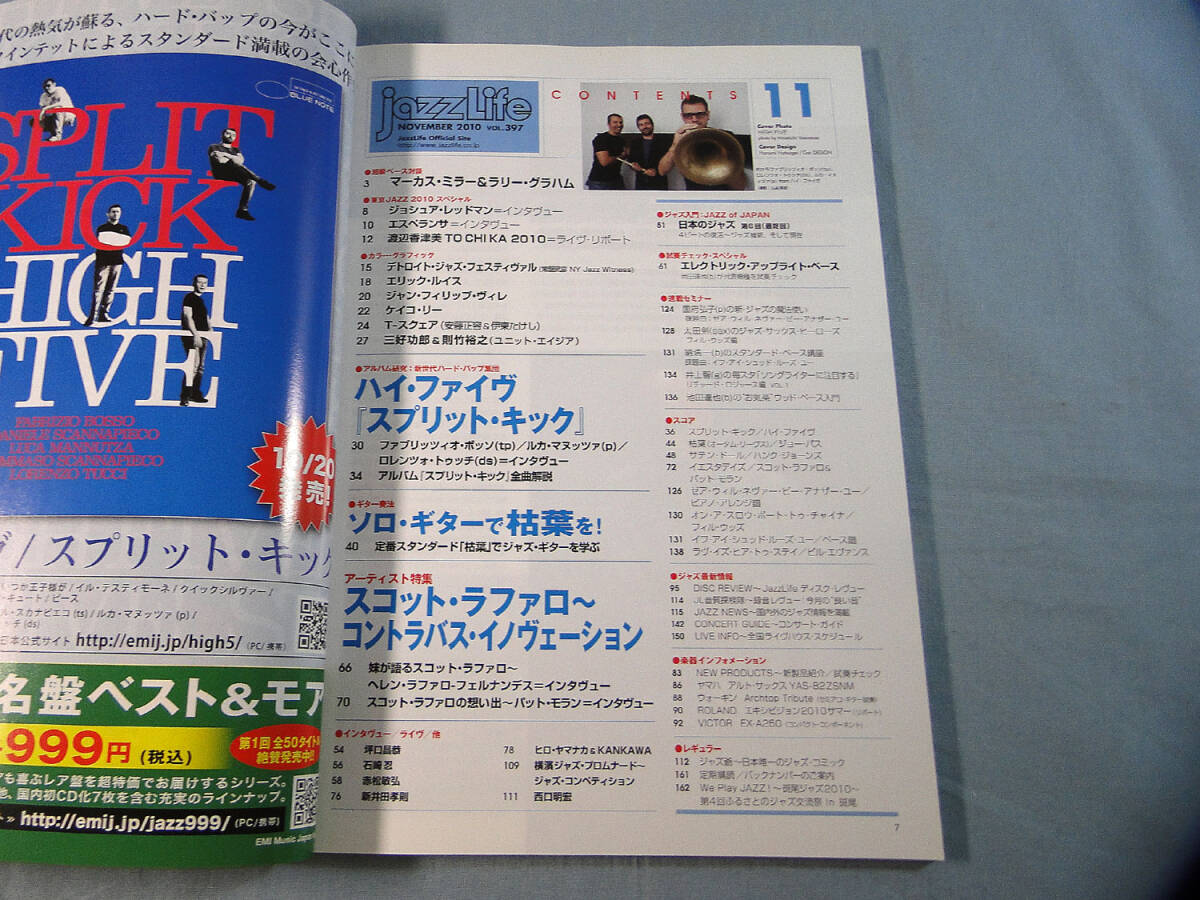 代の熱気が蘇る、ハード・バップの今がここに
インテットによるスタンダード満載の会心作
BLUE NOTE
SPLIT
KICK
HIGH
FIVE
FABRIZIO BOSSO
DANIELE SCANNAPIECO
LUCA MANNUTZA
TOMMASO SCANNAPIECO
LORENZO TUCCI
10/20
発売!
/スプリット・キック
いつか王子様が/イル・テスティモーネ/クイックシルヴァー/
キュート/ピース
ル・スカナピエコ(ts)/ルカ・マヌッツァ(p)/
ッチ(ds)
日本公式サイト http://emij.jp/high5/ (PC/携帯)
名盤ベスト&モア
999円(税込)
第1回 全50タイトル
絶賛発売中
も喜ぶレア盤を超特価でお届けするシリーズ。
他、国内初CD化7枚を含む充実のラインナップ。
http://emij.jp/jazz999/ (PC/携帯)
EMI Music Japan
jazzLife
NOVEMBER 2010 VOL.397
JazzLife Official Site
http://www.jazzlife.co.jp
CONTENTS
11
Cover Photo
HIGH FIVE
Cover Design
●超級ベース対談
3 マーカス・ミラー&ラリー・グラハム
●東京JAZZ 2010 スペシャル
8 ジョシュア・レッドマン=インタヴュー
10 エスペランサ=インタヴュー
12 渡辺香津美 TO CHI KA 2010=ライヴ・リポート
●カラー・グラフィック
15 デトロイト・ジャズ・フェスティヴァル(常盤武彦 NY Jazz Witness)
18 エリック・ルイス
20 ジャン・フィリップ・ヴィレ
22 ケイコ・リー
24 T-スクェア(安藤正容&伊東たけし)
27 三好功郎&則竹裕之(ユニット・エイジア)
●アルバム研究:新世代ハード・バップ集団
ハイ・ファイヴ
『スプリット・キック』
30 ファブリッツィオ・ボッソ(tp)/ルカ・マヌッツァ(p)/
ロレンツォ・トゥッチ(ds)=インタヴュー
34 アルバム『スプリット・キック』全曲解説
●ギター奏法
ソロ・ギターで枯葉を!
40 定番スタンダード「枯葉」でジャズ・ギターを学ぶ
アーティスト特集
スコット・ラファロ〜
コントラバス・イノヴェーション
66 妹が語るスコット・ラファロ〜
ヘレン・ラファロ-フェルナンデス=インタヴュー
70 スコット・ラファロの想い出〜パット・モラン=インタヴュー
●インタヴュー/ライヴ/他
54 坪口昌恭
56 石崎忍
58 赤松敏弘
76 新井田孝則
78 ヒロ・ヤマナカ&KANKAWA
109 横濱ジャズ・プロムナード〜
ジャズ・コンペティション
111 西口明宏
●ジャズ入門:JAZZ of JAPAN
51 日本のジャズ 第6回(最終回)
4ビートの復活〜ジャズ維新、そして現在
●試奏チェック・スペシャル
61 エレクトリック・アップライト・ベース
池田達也(b)が代表機種を試奏チェック
●連載セミナー
124 国府弘子(p)の新・ジャズの魔法使い
課題曲:ゼア・ウィル・ネヴァー・ビー・アナザー・ユー
128 太田剣(sax)のジャズ・サックス・ヒーローズ
フィル・ウッズ編
131 納浩一(b)のスタンダード・ベース講座
課題曲:イフ・アイ・シュッド・ルーズ・ユー
134 井上智(g)の毎スタ「ソングライターに注目する」
リチャード・ロジャース編 VOL.1
136 池田達也(b)の“お気楽”ウッド・ベース入門
●スコア
36 スプリット・キック/ハイ・ファイヴ
44 枯葉(オータム・リーヴス)/ジョー・パス
48 サテン・ドール/ハンク・ジョーンズ
72 イエスタデイズ/スコット・ラファロ&
パット・モラン
126 ゼア・ウィル・ネヴァー・ビー・アナザー・ユー/
ピアノ・アレンジ譜
130 オン・ア・スロウ・ボート・トゥ・チャイナ/
フィル・ウッズ
131 イフ・アイ・シュッド・ルーズ・ユー/ベース譜
138 ラヴ・イズ・ヒア・トゥ・ステイ/ビル・エヴァンス
●ジャズ最新情報
95 DISC REVIEW〜JazzLife ディスク・レヴュー
114 JL音質探検隊〜録音レヴュー/今月の“良い音”
115 JAZZ NEWS〜国内外のジャズ情報を満載
142 CONCERT GUIDE〜コンサート・ガイド
150 LIVE INFO〜全国ライヴハウス・スケジュール
●楽器インフォメーション
83 NEW PRODUCTS〜新製品紹介/試奏チェック
86 ヤマハ アルト・サックス YAS-82ZSNM
88 ウォーキン Archtop Tribute
90 ROLAND エキシビジョン2010サマー(リポート)
92 VICTOR EX-A250(コンパクト・コンポーネント)
●レギュラー
112 ジャズ爺〜日本唯一のジャズ・コミック
161 定期購読/バックナンバーのご案内
162 We Play JAZZ!〜斑尾ジャズ2010〜
第4回ふるさとのジャズ交流祭 in 斑尾
7